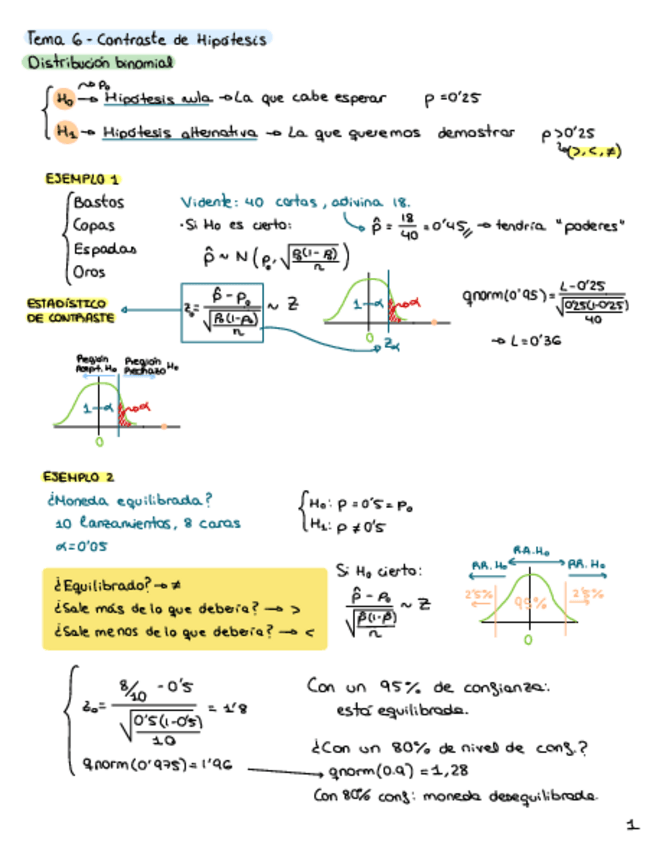 Tema 6 - Contraste de Hipótesis
Distribución binomial
P₀
H₀ → Hipótesis nula → La que cabe esperar p = 0'25
H₁ → Hipótesis alternativa → La que queremos demostrar p > 0'25
(>, <, ≠)
EJEMPLO 1
Bastos
Copas
Espadas
Oros
Vidente: 40 cartas, adivina 18.
· Si H₀ es cierto: p̂ = 18/40 = 0'45 → tendría "poderes"
p̂ ~ N(p₀, √(p₀(1-p₀)/n))
ESTADÍSTICO DE CONTRASTE
z₀ = (p̂ - p₀)/√(p₀(1-p₀)/n) ~ Z
1-α α
0 Zα
qnorm(0'95) = (L-0'25)/√(0'25(1-0'25)/40)
→ L = 0'36
Región Acept. H₀ Región Rechazo H₀
1-α α
0
EJEMPLO 2
¿Moneda equilibrada?
10 lanzamientos, 8 caras
α = 0'05
H₀: p = 0'5 = p₀
H₁: p ≠ 0'5
¿Equilibrado? → ≠
¿Sale más de lo que debería? → >
¿Sale menos de lo que debería? → <
Si H₀ cierto:
(p̂ - p₀)/√(p̂(1-p̂)/n) ~ Z
R.A. H₀
R.R. H₀ R.R. H₀
2'5% 95% 2'5%
0
z₀ = (8/10 - 0'5)/√(0'5(1-0'5)/10) = 1'8
qnorm(0'975) = 1'96
Con un 95% de confianza:
está equilibrada.
¿Con un 80% de nivel de conf.?
qnorm(0.9) = 1,28
Con 80% conf: moneda desequilibrada.
1